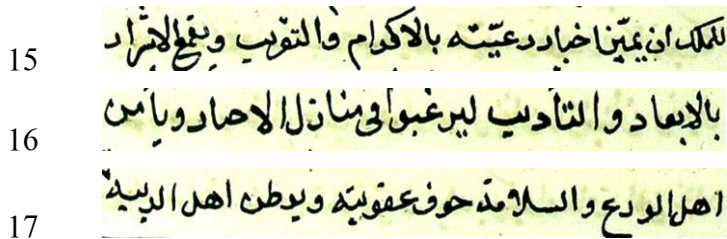 15 للملك ان يميّز اخيار رعيّته بالاكرام والتقريب ويقمع الاشرار
16 بالابعاد والتأديب ليرغبوا في منازل الاخيار ويأمن
17 اهل الورع والسلامة خوف عقوبته ويوطن اهل الريبة